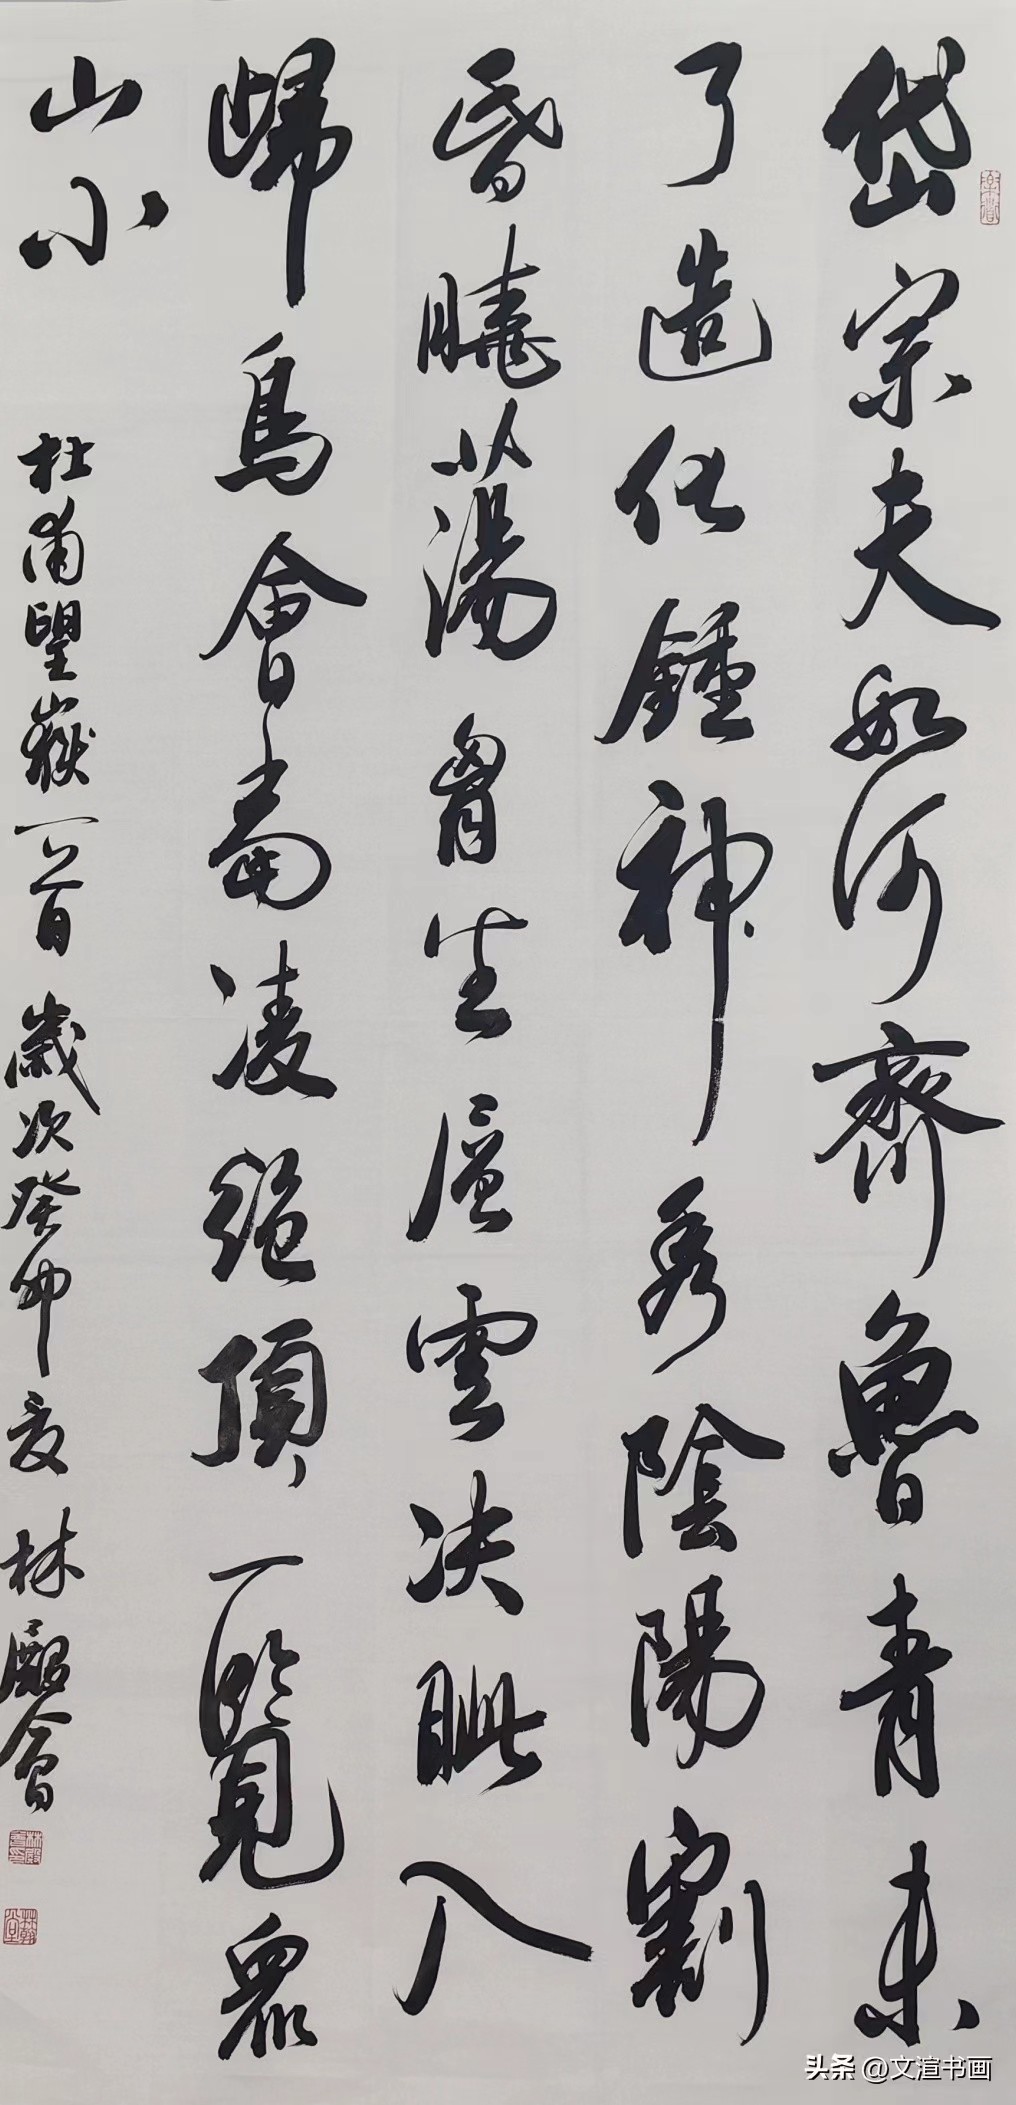 岱宗夫如何齊魯青未
了造化鍾神秀陰陽割
昏曉蕩胷生層雲决眦入
歸鳥會當凌絕頂一覽眾
山小 杜甫望嶽一首 歲次癸卯夏 林殿會
头条 @文渲书画